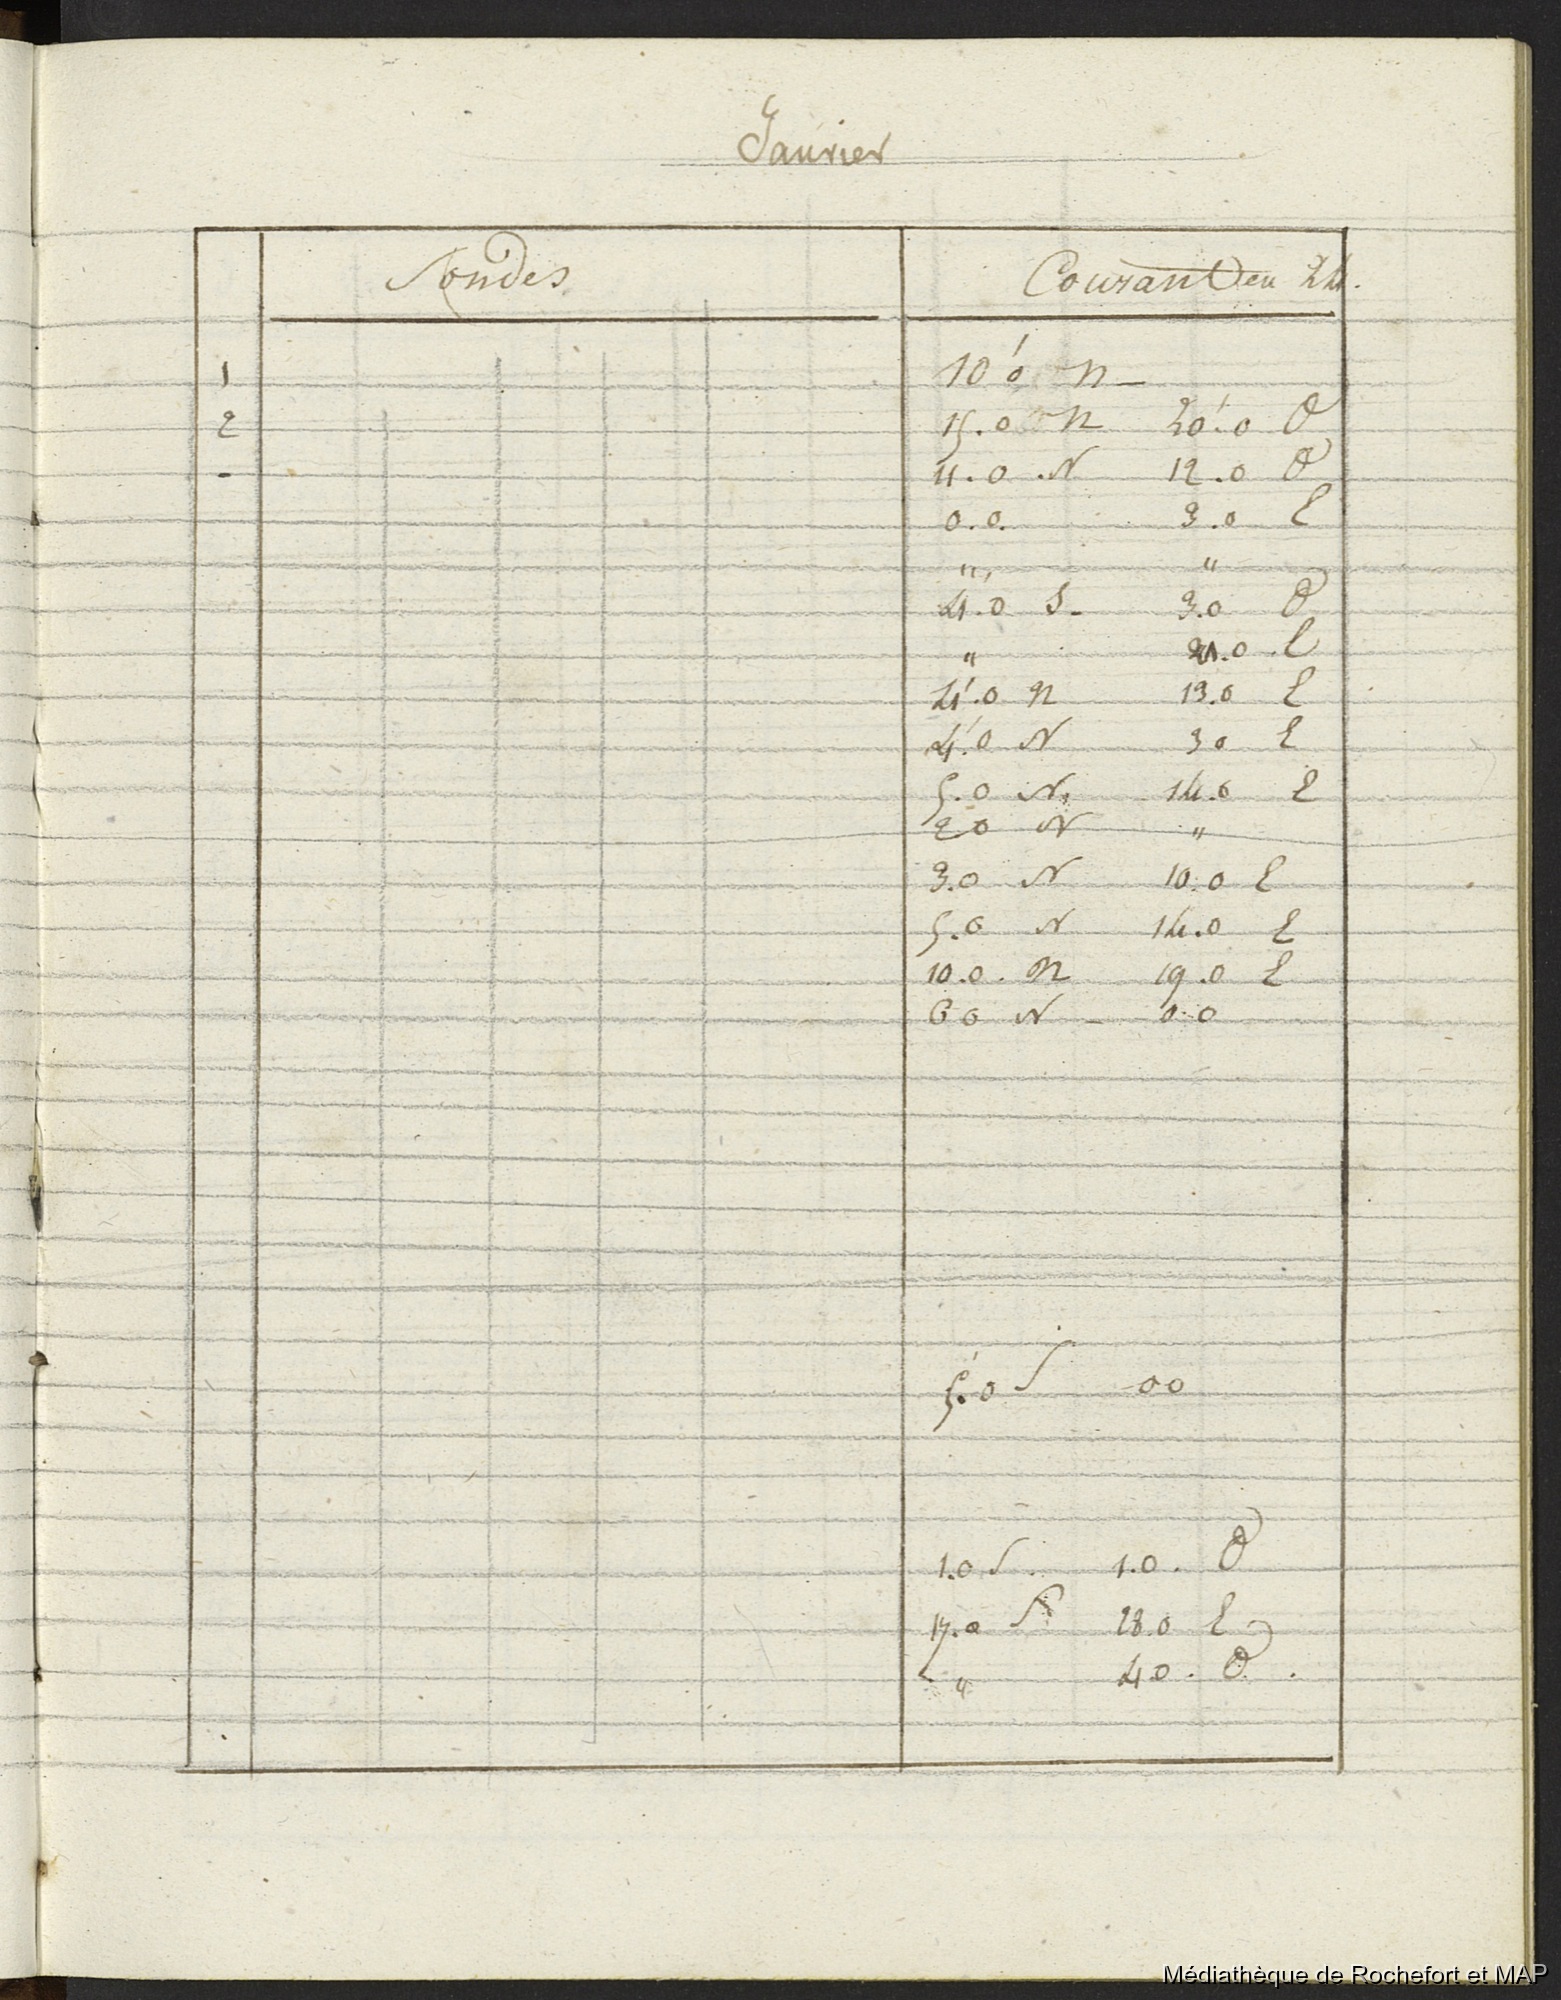 Janvier
Sondes Courant en 24.
1 10'0 N
2 15.0 N 20'.0 O
- 11.0 N 12.0 O
0.0. 3.0 E
" "
4'.0 S. 3.0 O
" .0 E
4'.0 N 13.0 E
4'.0 N 3 0 E
5.0 N. 14.0 E
2 0 N "
3.0 N 10.0 E
5.0 N 14.0 E
10.0. N 19.0 E
6 0 N - 0.0
5'.0 S 00
1.0 S. 1.0. O
17.0 S 28.0 E
" 4 0. O.
Médiathèque de Rochefort et MAP